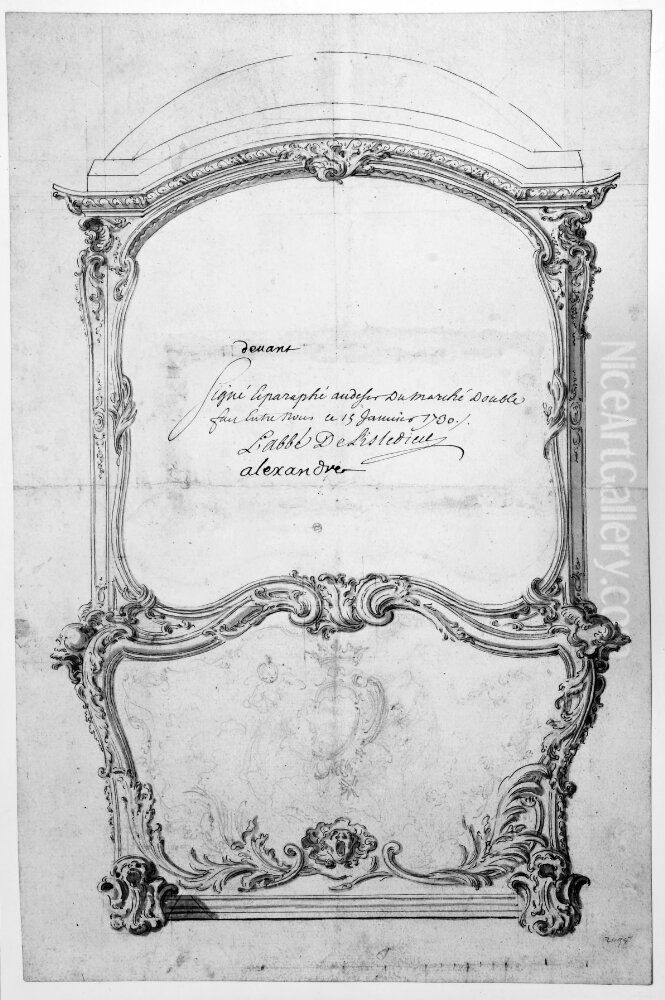 devant
Signé et paraphé au desir Du marché Double
fait Entre Nous ce 15 Janvier 1730 /.
L'abbé De
alexandre
NiceArtGallery.co